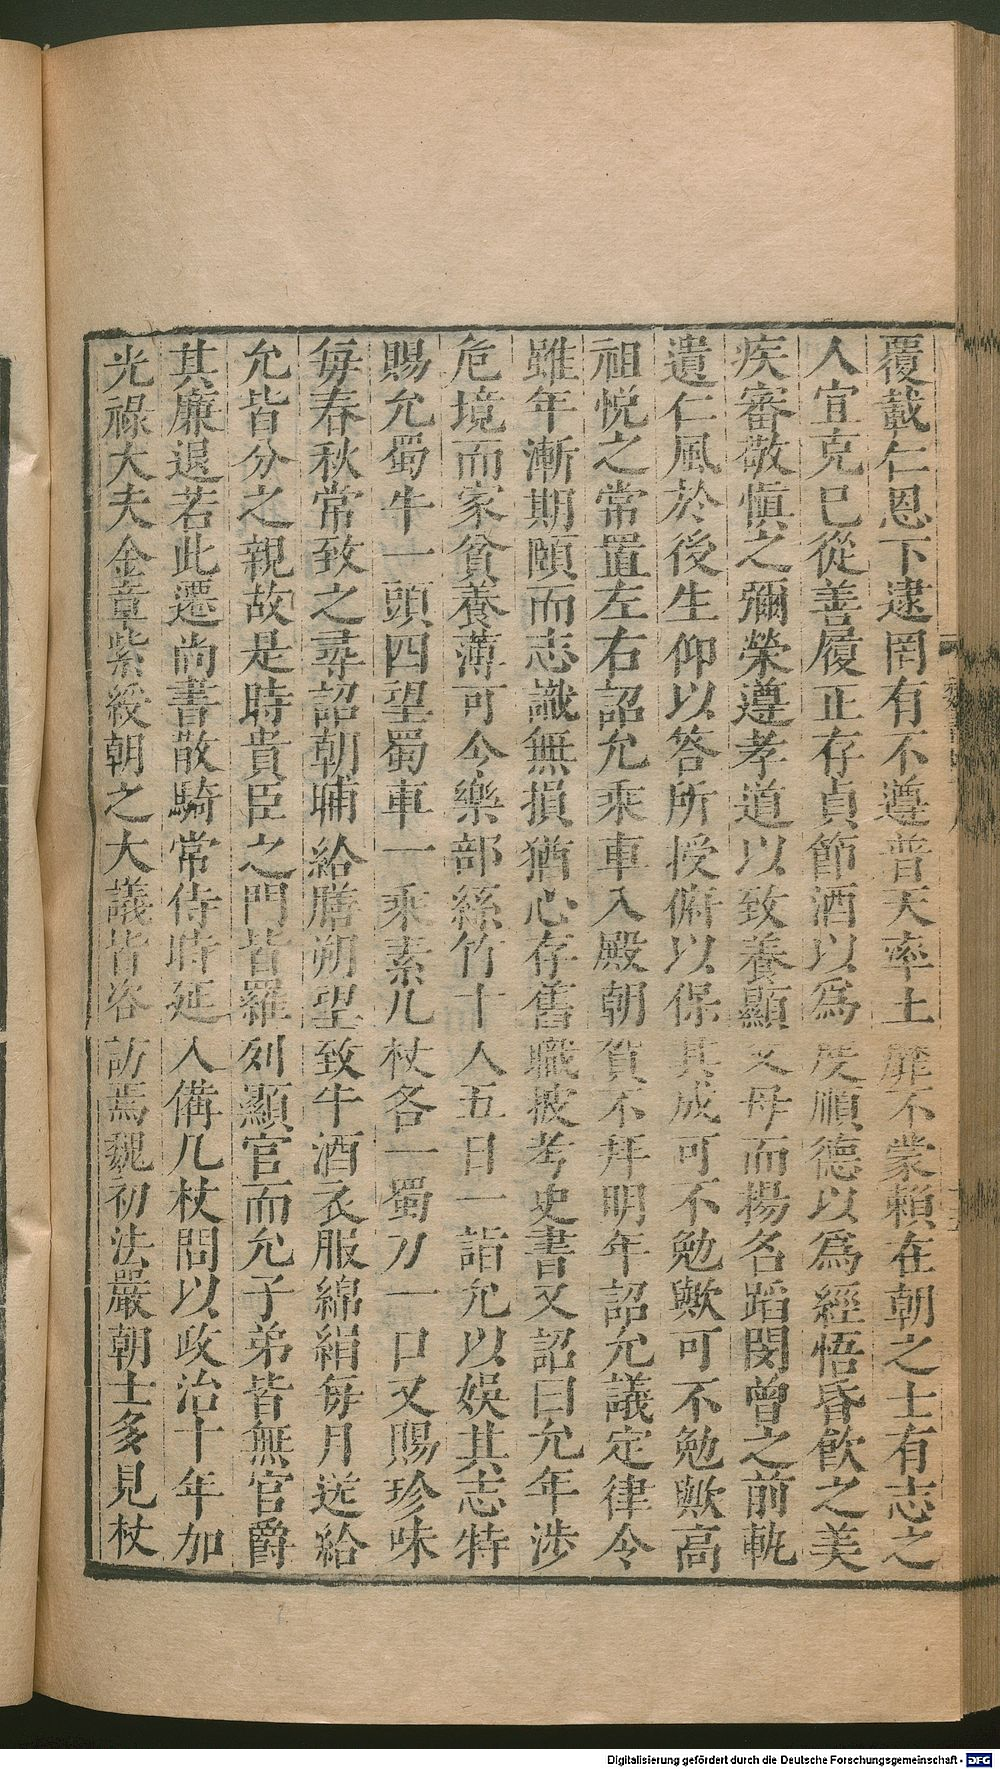 覆載仁恩下逮罔有不遵普天率土靡不蒙賴在朝之士有志之
人宜克已從善履正存貞節酒以爲度順德以爲經悟昏飲之美
疾審敬愼之彌榮遵孝道以致養顯父母而揚名蹈閔曾之前軌
遺仁風於後生仰以答所授俯以保其成可不勉歟可不勉歟高
祖悦之常置左右詔允乘車入殿朝賀不拜明年詔允議定律令
雖年漸期頤而志識無損猶心存舊職披考史書又詔曰允年涉
危境而家貧養薄可令樂部絲竹十人五日一詣允以娯其志特
賜允蜀牛一頭四望蜀車一乘素几杖各一蜀刀一口又賜珍味
每春秋常致之尋詔朝晡給膳朔望致牛酒衣服綿絹每月送給
允皆分之親故是時貴臣之門皆羅列顯官而允子弟皆無官爵
其廉退若此遷尚書散騎常侍時延入備几杖問以政治十年加
光祿大夫金章紫綬朝之大議皆咨訪焉魏初法嚴朝士多見杖
Digitalisierung gefördert durch die Deutsche Forschungsgemeinschaft - DFG